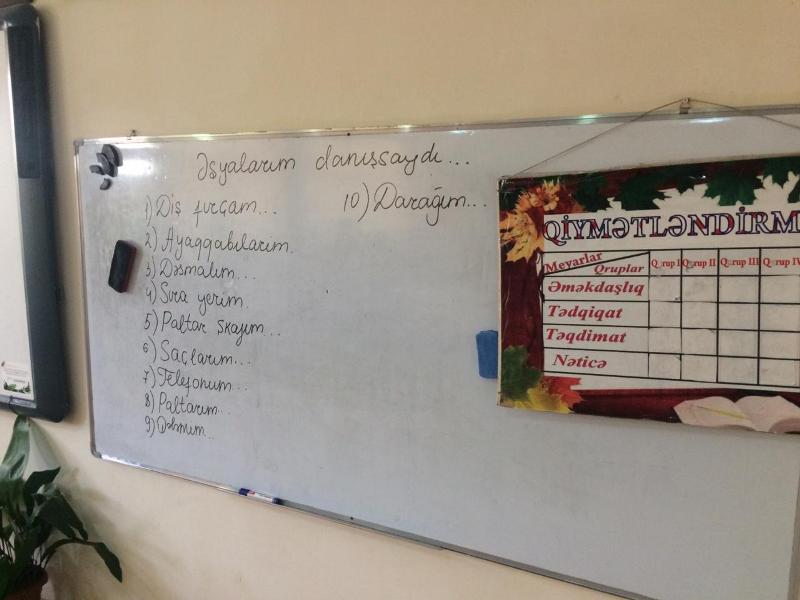 Əşyalarım danışsaydı...
1) Diş fırçam...
2) Ayaqqabılarım.
3) Dəsmalım...
4) Sıra yerim.
5) Paltar şkafım...
6) Saçlarım...
7) Telefonum...
8) Paltarım..
9)
10) Darağım...
QİYMƏTLƏNDİRM
Meyarlar
Qruplar
Qrup I Qrup II Qrup III Qrup IV
Əməkdaşlıq
Tədqiqat
Təqdimat
Nəticə